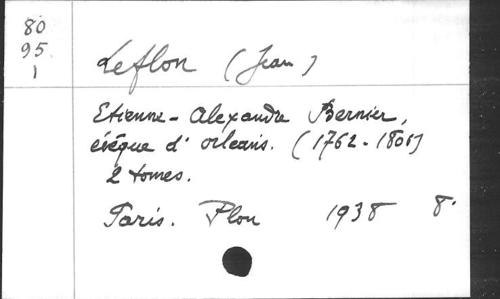 80
95.
1
Leflon (Jean)
Etienne-Alexandre Bernier,
évêque d' orleans. (1762-1806)
2 tomes.
Paris. Plon 1938 8°